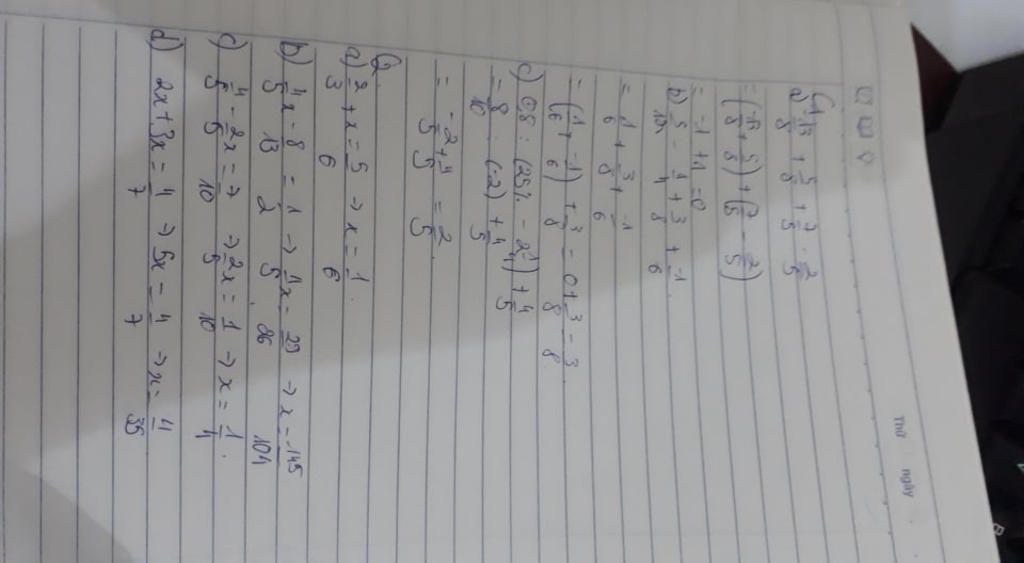 Thứ ngày
a) -13/8 + 5/8 + 7/5 - 2/5
= (-13/8 + 5/8) + (7/5 - 2/5)
= -1 + 1 = 0
b) 5/12 - 1/4 + 3/8 + -1/6
= 1/6 + 3/8 + -1/6
= (1/6 + -1/6) + 3/8 = 0 + 3/8 = 3/8
c) 0,8 : (25% - 2 1/4) + 4/5
= 8/10 : (-2) + 4/5
= -2/5 + 4/5 = 2/5
a) 2/3 + x = 5/6 → x = 1/6
b) 4/5 x - 8/13 = 1/2 → 4/5 x = 29/26 → x = 145/104
c) 4/5 - 2/5 x = 7/10 → 2/5 x = 1/10 → x = 1/4.
d) 2x + 3x = 4/7 → 5x = 4/7 → x = 4/35